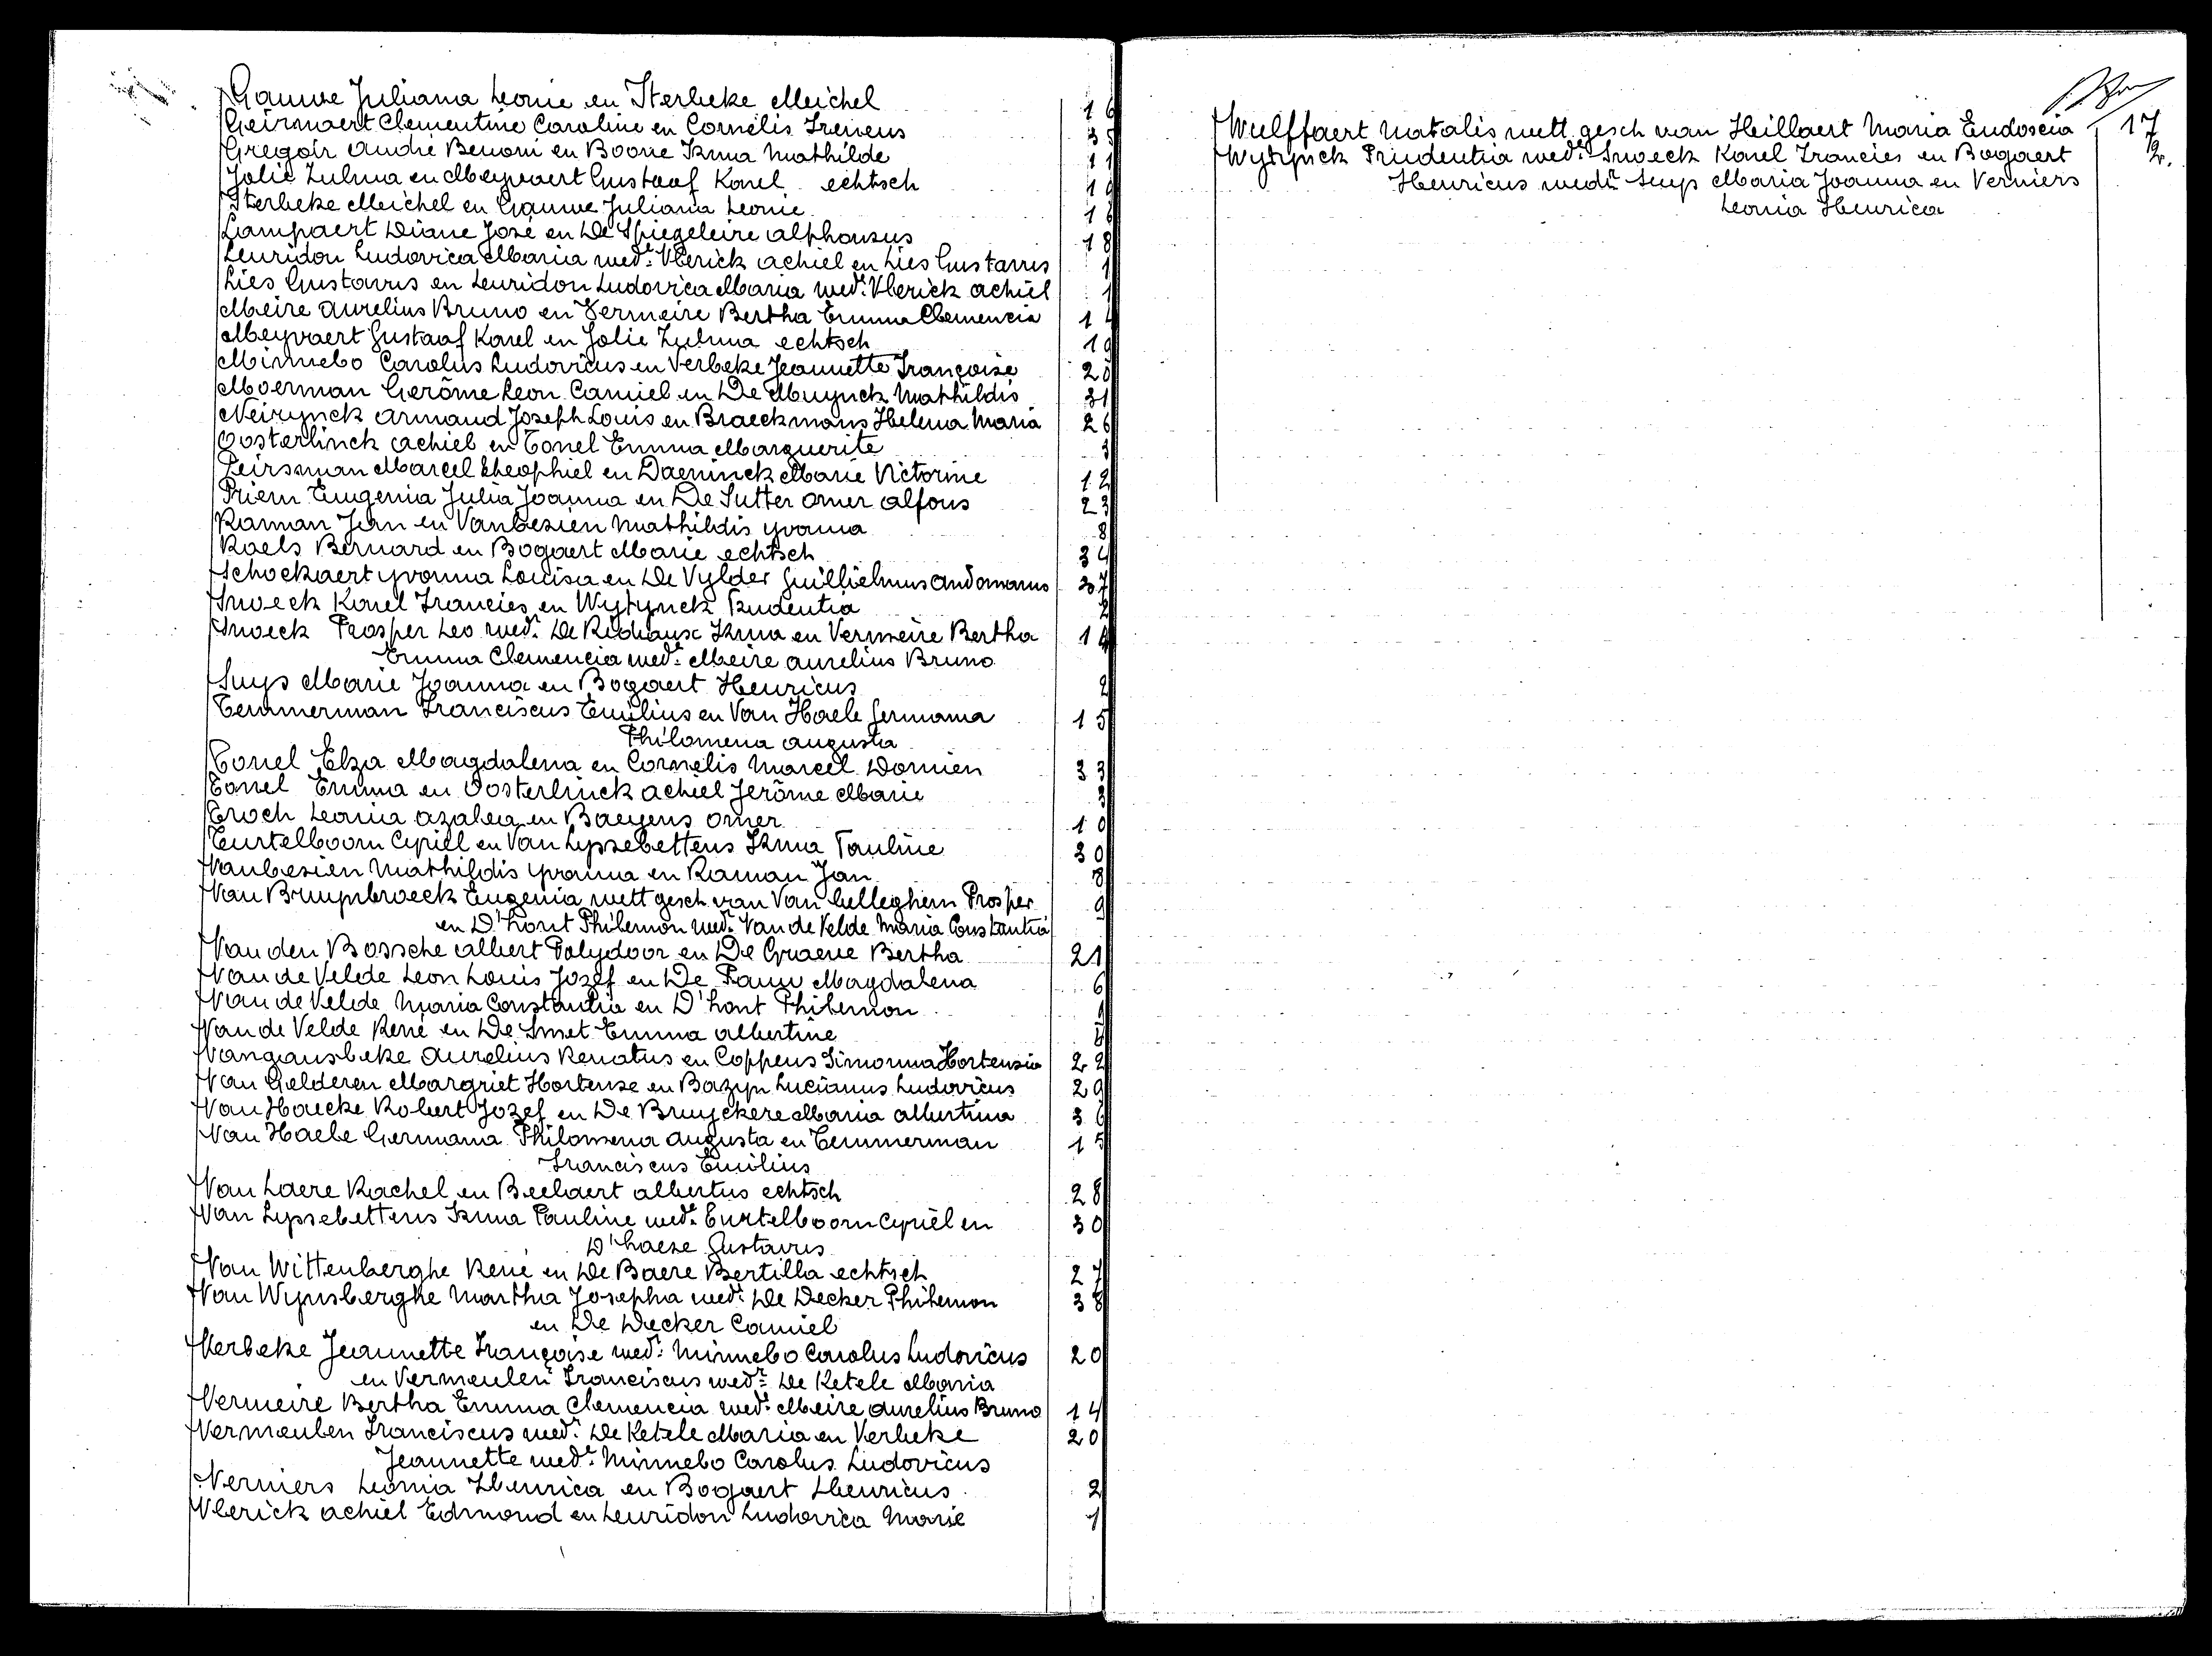 Gauwe Juliana Leonie en Sterbeke Meichel 16
Geirnaert Clementine Caroline en Cornelis Ireneus 35
Gregoir André Benoni en Boone Irma Mathilde 11
Jolie Zulma en Meyvaert Gustaaf Karel echtsch 19
Sterbeke Meichel en Gauwe Juliana Leonie 16
Lampaert Diane José en De Spiegeleire Alphonsus 18
Leuridon Ludovica Maria wede. Vlerick Achiel en Lies Gustavus 1
Lies Gustavus en Leuridon Ludovica Maria wede. Vlerick Achiel 1
Meire Aurelius Bruno en Vermeire Bertha Emma Clemencia 14
Meyvaert Gustaaf Karel en Jolie Zulma echtsch 19
Minnebo Carolus Ludovicus en Verbeke Jeannette Françoise 20
Moerman Gerôme Leon Camiel en De Muynck Mathildis 31
Neirynck Armand Joseph Louis en Braeckmans Helena Maria 26
Oosterlinck Achiel en Tonel Emma Marguerite 3
Peirsman Marcel Theophiel en Daeninck Marie Victorine 12
Priem Eugenia Julia Joanna en De Sutter Omer Alfons 23
Raman Jean en Vanbesien Mathildis Yvonna 8
Roels Bernard en Bogaert Marie echtsch 34
Schockaert Yvonna Louisa en De Vylder Guillielmus Andomarus 37
Snoeck Karel Francies en Wytynck Prudentia 2
Snoeck Prosper Leo wedr. De Ridiaux Irma en Vermeire Bertha 14
Emma Clemencia wede. Meire Aurelius Bruno
Suys Marie Joanna en Bogaert Henricus 2
Temmerman Franciscus Emilius en Van Haele Germana 15
Philomena Augusta
Tonel Elza Magdalena en Cornelis Marcel Domien 33
Tonel Emma en Oosterlinck Achiel Jerôme Marie 3
Troch Leonia Azalea en Baeyens Omer 10
Turtelboom Cyriel en Van Lyssebettens Irma Pauline 30
Vanbesien Mathildis Yvonna en Raman Jan 8
Van Bruynbroeck Eugenia wett gesch van Van Culleghem Prosper 9
en D'hont Philemon wedr. Van de Velde Maria Constantia
Van den Bossche Albert Polydoor en De Graeve Bertha 21
Van de Velde Leon Louis Jozef en De Pauw Magdalena 6
Van de Velde Maria Constantia en D'hont Philemon 9
Van de Velde René en De Smet Emma Albertine
Vangansbeke Aurelius Renatus en Coppens Simonna Hortensia 22
Van Gelderen Margriet Hortense en Bazyn Lucianus Ludovicus 29
Van Haecke Robert Jozef en De Bruyckere Maria Albertina 36
Van Haele Germana Philomena Augusta en Temmerman 15
Franciscus Emilius
Van Laere Rachel en Beelaert Albertus echtsch 28
Van Lyssebettens Irma Pauline wede. Turtelboom Cyriel en 30
D'haese Gustavus
Van Wittenberghe René en De Baere Bertilla echtsch 27
Van Wynsberghe Martha Josepha wede. De Decker Philemon 38
en De Decker Camiel
Verbeke Jeannette Françoise wede. Minnebo Carolus Ludovicus 20
en Vermeulen Franciscus wedr. De Ketele Maria
Vermeire Bertha Emma Clemencia wede. Meire Aurelius Bruno 14
Vermeulen Franciscus wedr. De Ketele Maria en Verbeke 20
Jeannette wede. Minnebo Carolus Ludovicus
Verniers Leonia Henrica en Bogaert Henricus 2
Vlerick Achiel Edmond en Leuridon Ludovica Marie 1
Wulffaert Natalis wett gesch van Heillaert Maria Eudoscia 17
Wytynck Prudentia wede. Snoeck Karel Francies en Bogaert 2.
Henricus wedr. Suys Maria Joanna en Verniers
Leonia Henrica